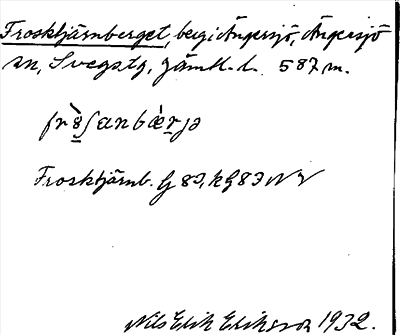 Frosktjärnberget, berg i Ängersjö, Ängersjö
sn, Svegs tg, Jämtl. l. 587 m.
Frosktjärnb. G 83, kG 83 NV
Nils Erik Eriksson 1932.